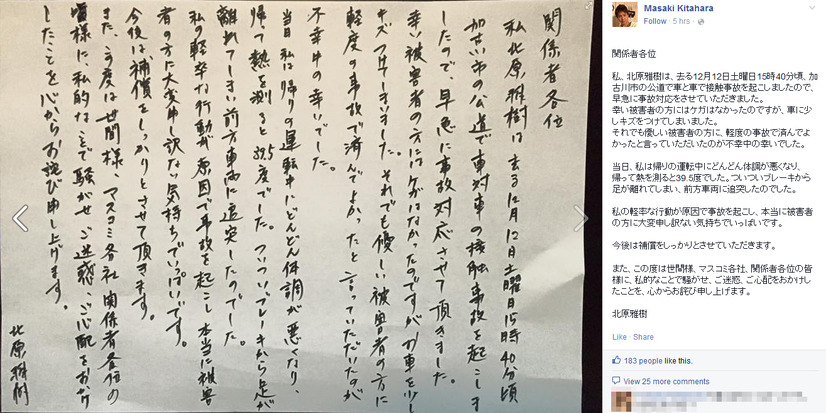 関係者各位
私 北原雅樹は去る12月12日土曜日15時40分頃
加古川市の公道で車対車の接触事故を起こしま
したので、早急に事故対応させて頂きました。
幸い被害者の方にはケガはなかったのですがお車を少し
キズつけてしまいました。それでも優しい被害者の方に
軽度の事故で済んでよかったと言っていただいたのが
不幸中の幸いでした。
当日私は帰りの運転中にどんどん体調が悪くなり、
帰って熱を測ると39.5度でした。ついついブレーキから足が
離れてしまい前方車両に追突したのでした。
私の軽率な行動が原因で事故を起こし本当に被害
者の方に大変申し訳ない気持ちでいっぱいです。
今後は補償をしっかりとさせて頂きます。
また、この度は世間様、マスコミ各社、関係者各位の
皆様に、私的なことで騒がせご迷惑、ご心配をおかけ
したことを心からお詫び申し上げます。
北原雅樹
Masaki Kitahara
Follow · 5 hrs ·
関係者各位
私、北原雅樹は、去る12月12日土曜日15時40分頃、加
古川市の公道で車と車で接触事故を起こしましたので、
早急に事故対応をさせていただきました。
幸い被害者の方にはケガはなかったのですが、車に少し
キズをつけてしまいました。
それでも優しい被害者の方に、軽度の事故で済んでよ
かったと言っていただいたのが不幸中の幸いでした。
当日、私は帰りの運転中にどんどん体調が悪くなり、
帰って熱を測ると39.5度でした。ついついブレーキから
足が離れてしまい、前方車両に追突したのでした。
私の軽率な行動が原因で事故を起こし、本当に被害者
の方に大変申し訳ない気持ちでいっぱいです。
今後は補償をしっかりとさせていただきます。
また、この度は世間様、マスコミ各社、関係者各位の皆
様に、私的なことで騒がせ、ご迷惑、ご心配をおかけし
たことを、心からお詫び申し上げます。
北原雅樹
Like · Share
183 people like this.
View 25 more comments